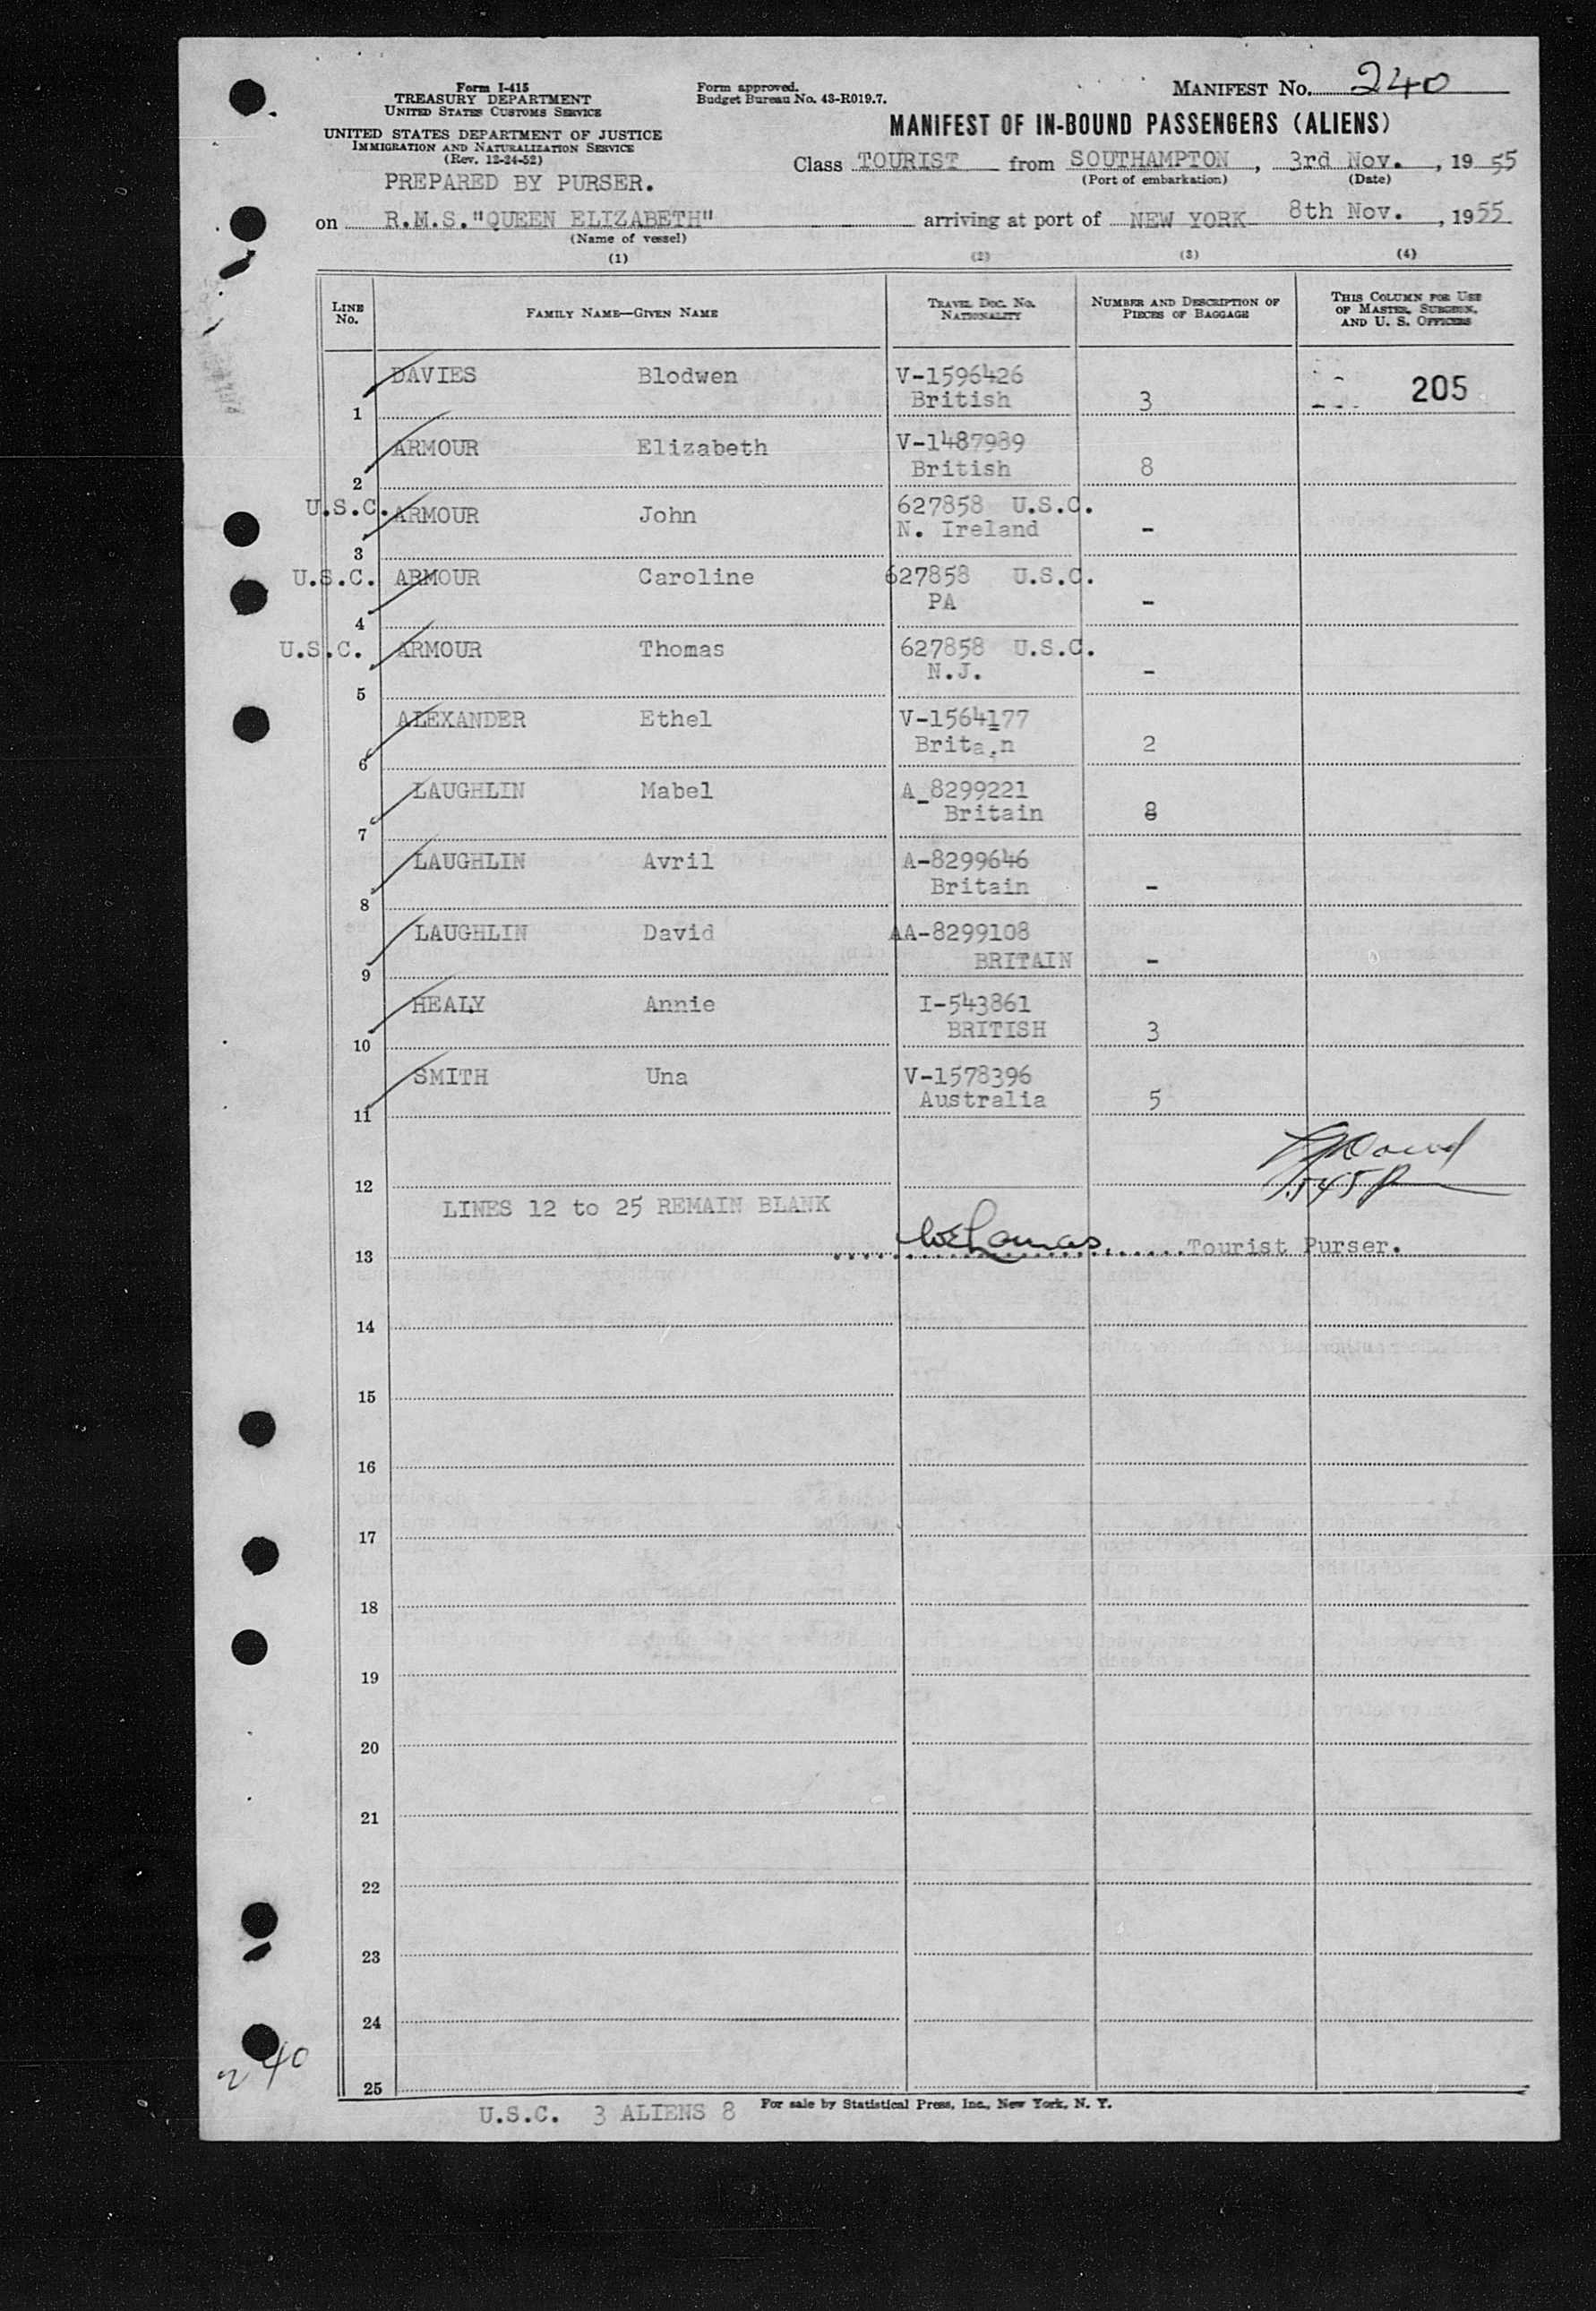 Form I-415
TREASURY DEPARTMENT
UNITED STATES CUSTOMS SERVICE
UNITED STATES DEPARTMENT OF JUSTICE
IMMIGRATION AND NATURALIZATION SERVICE
(Rev. 12-24-52)
PREPARED BY PURSER.
Form approved.
Budget Bureau No. 43-R019.7.
MANIFEST NO. 240
MANIFEST OF IN-BOUND PASSENGERS (ALIENS)
Class TOURIST from SOUTHAMPTON, 3rd Nov., 1955
(Port of embarkation) (Date)
on R.M.S."QUEEN ELIZABETH" arriving at port of NEW YORK 8th Nov., 1955
(Name of vessel)
(1) (2) (3) (4)
LINE NO. FAMILY NAME—GIVEN NAME TRAVEL DOC. NO. NATIONALITY NUMBER AND DESCRIPTION OF PIECES OF BAGGAGE THIS COLUMN FOR USE OF MASTER, SURGEON, AND U. S. OFFICERS
DAVIES Blodwen V-1596426 205
1 British 3
ARMOUR Elizabeth V-1487989
2 British 8
U.S.C. ARMOUR John 627858 U.S.C.
3 N. Ireland -
U.S.C. ARMOUR Caroline 627858 U.S.C.
4 PA -
U.S.C. ARMOUR Thomas 627858 U.S.C.
5 N.J. -
ALEXANDER Ethel V-1564177
6 Brita.n 2
LAUGHLIN Mabel A_8299221
7 Britain 8
LAUGHLIN Avril A-8299646
8 Britain -
LAUGHLIN David AA-8299108
9 BRITAIN -
HEALY Annie I-543861
10 BRITISH 3
SMITH Una V-1578396
11 Australia 5
12
LINES 12 to 25 REMAIN BLANK
13 Tourist Purser.
14
15
16
17
18
19
20
21
22
23
24
240
25
U.S.C. 3 ALIENS 8 For sale by Statistical Press, Inc., New York, N. Y.